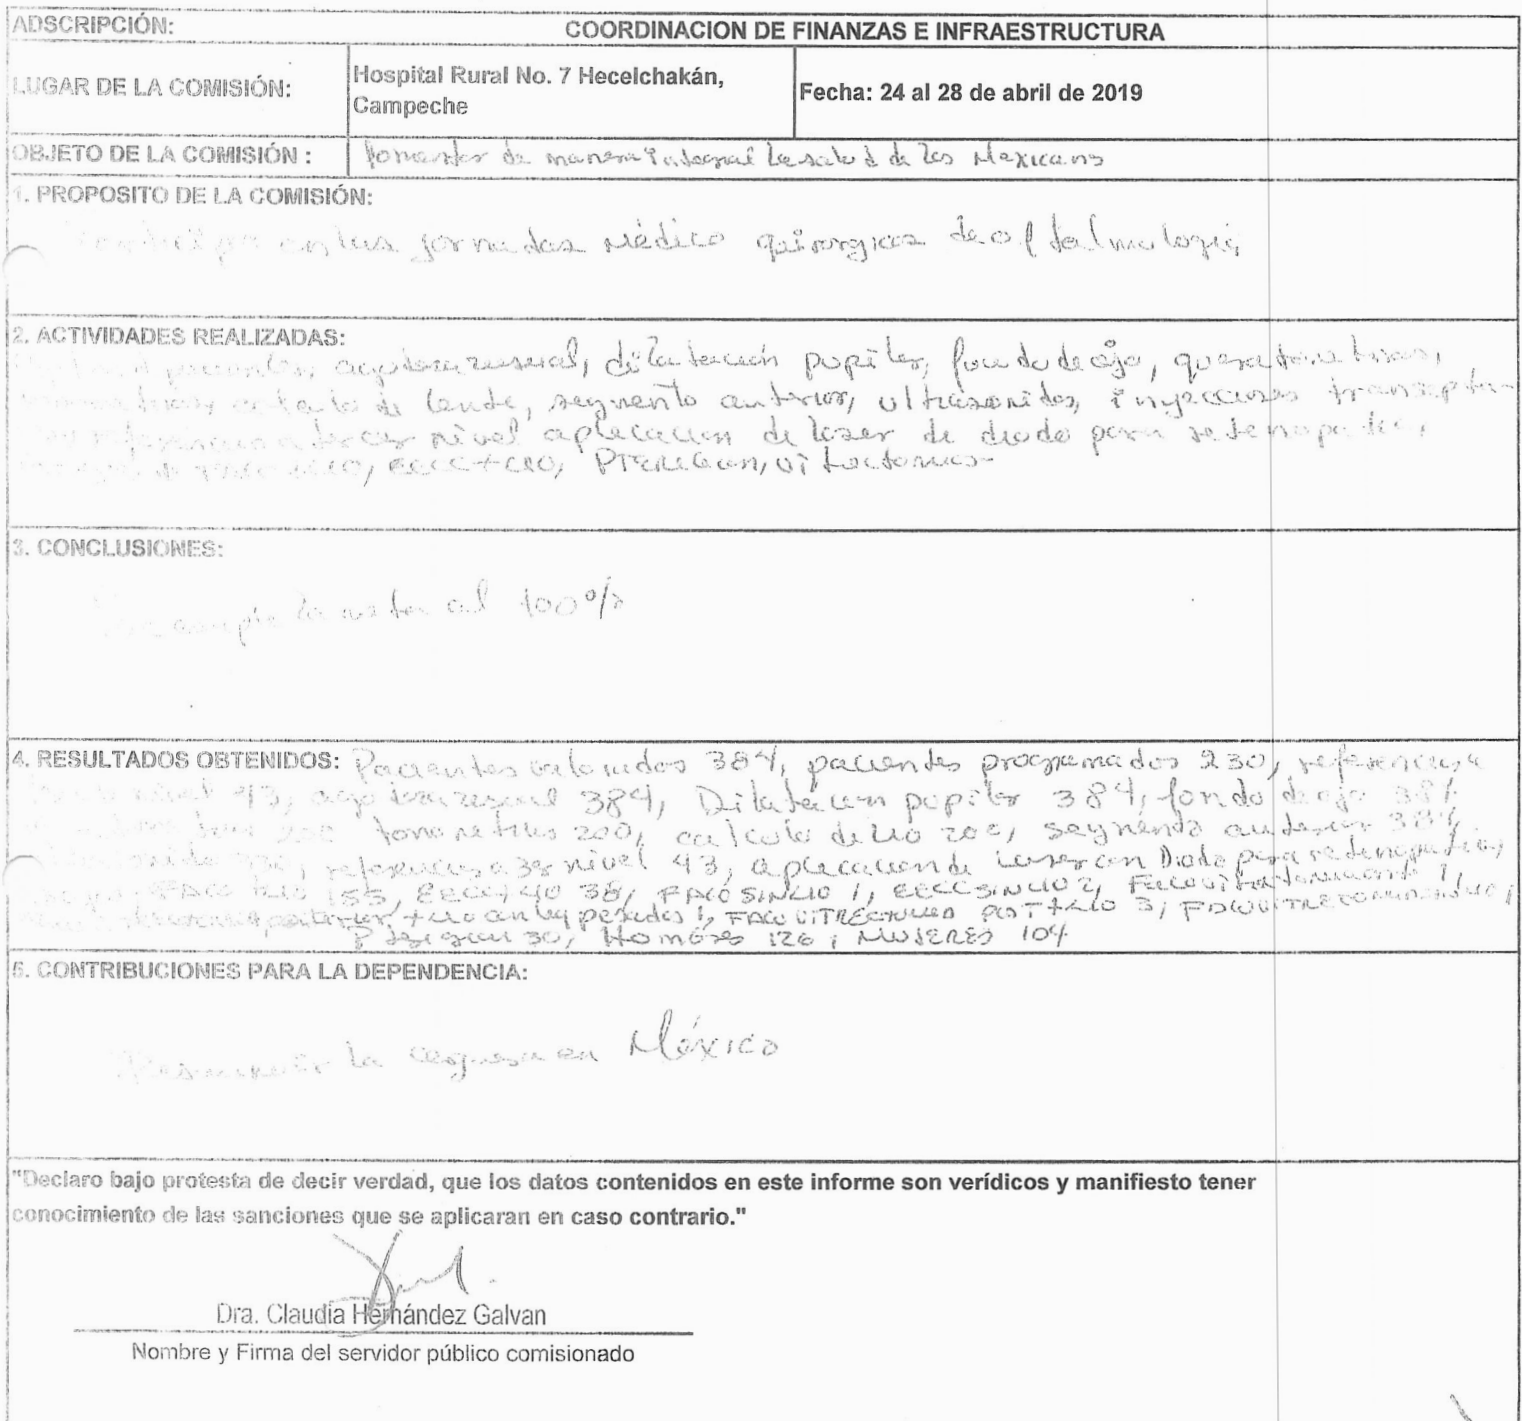 ADSCRIPCIÓN: COORDINACION DE FINANZAS E INFRAESTRUCTURA
LUGAR DE LA COMISIÓN: Hospital Rural No. 7 Hecelchakán, Campeche Fecha: 24 al 28 de abril de 2019
OBJETO DE LA COMISIÓN : Fomentar de manera integral la salud de los Mexicanos
1. PROPOSITO DE LA COMISIÓN:
en las jornadas Médico quirurgicas de oftalmologia
2. ACTIVIDADES REALIZADAS:
pacientes, agudeza visual, dilatación pupilar, fondo de ojo, queratometrias,
calculo de lente, segmento anterior, ultrasonidos, inyecciones
referencia a tercer nivel aplicacion de laser de diodo para retinopatia,
EECC+LIO, PTERIGION, vitrectomias
3. CONCLUSIONES:
Se cumplio la meta al 100%
4. RESULTADOS OBTENIDOS: Pacientes valorados 384, pacientes programados 230, referencia a
nivel 43, agudeza visual 384, Dilatación pupilar 384, fondo de ojo 384
tonometrias 200, calculo de LIO 200, segmento anterior 384,
referencias a 3er nivel 43, aplicacion de laser con Diodo para retinopatia,
FACO LIO 155, EECC+LIO 38, FACO SIN LIO 1, EECC SIN LIO 2, 1,
pesados 1, FACOVITRECTOMIA POST+LIO 3,
Pterigion 30, Hombres 126, MUJERES 104
5. CONTRIBUCIONES PARA LA DEPENDENCIA:
Disminuir la ceguera en México
"Declaro bajo protesta de decir verdad, que los datos contenidos en este informe son verídicos y manifiesto tener
conocimiento de las sanciones que se aplicaran en caso contrario."
Dra. Claudia Hernández Galvan
Nombre y Firma del servidor público comisionado